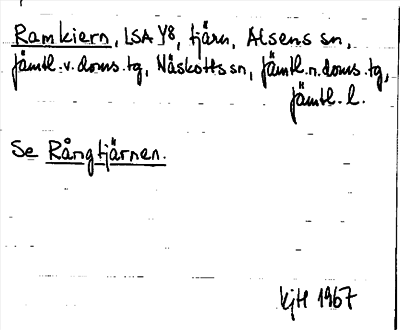 Ramkiern, LSA Y8, tjärn, Alsens sn,
Jämtl. v. doms. tg, Näskotts sn, Jämtl. n. doms. tg,
Jämtl. l.
Se Rångtjärnen.
KjH 1967